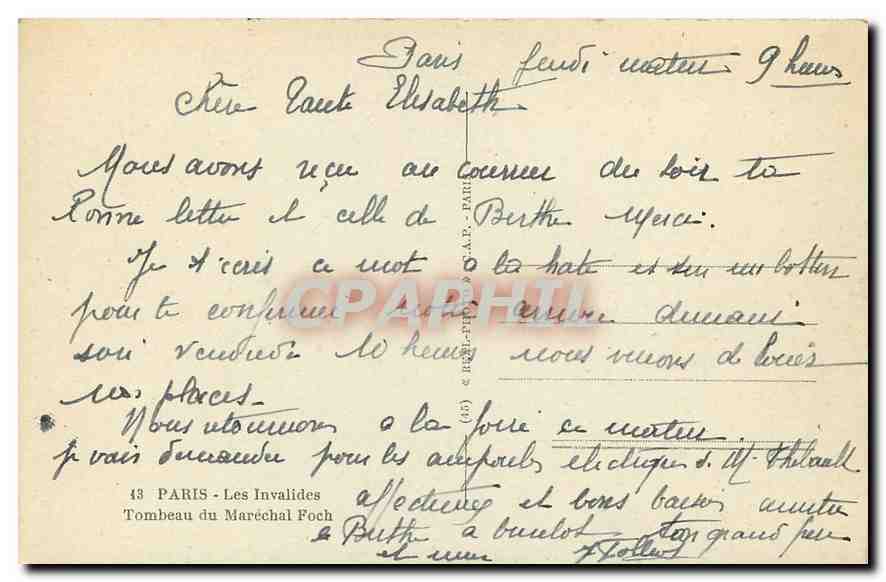 Paris Jeudi matin 9 heures
Chère Tante Elisabeth
Nous avons reçu au courrier du soir ta
Bonne lettre et celle de Berthe Merci.
Je t'écris ce mot a la hate et sur un bottin
pour te confirmer notre arrivée demain
soir vendredi 10 heures nous venons de louer
nos places -
Nous retournons a la foire ce matin.
je vais demander pour les ampoules electriques d. Mr Thibault
affectueux et bons baisers
a Berthe a bientot ton grand père
et
13 PARIS - Les Invalides
Tombeau du Maréchal Foch
(45) « REAL-PHOTO » C.A.P. - PARIS
CPAPHIL